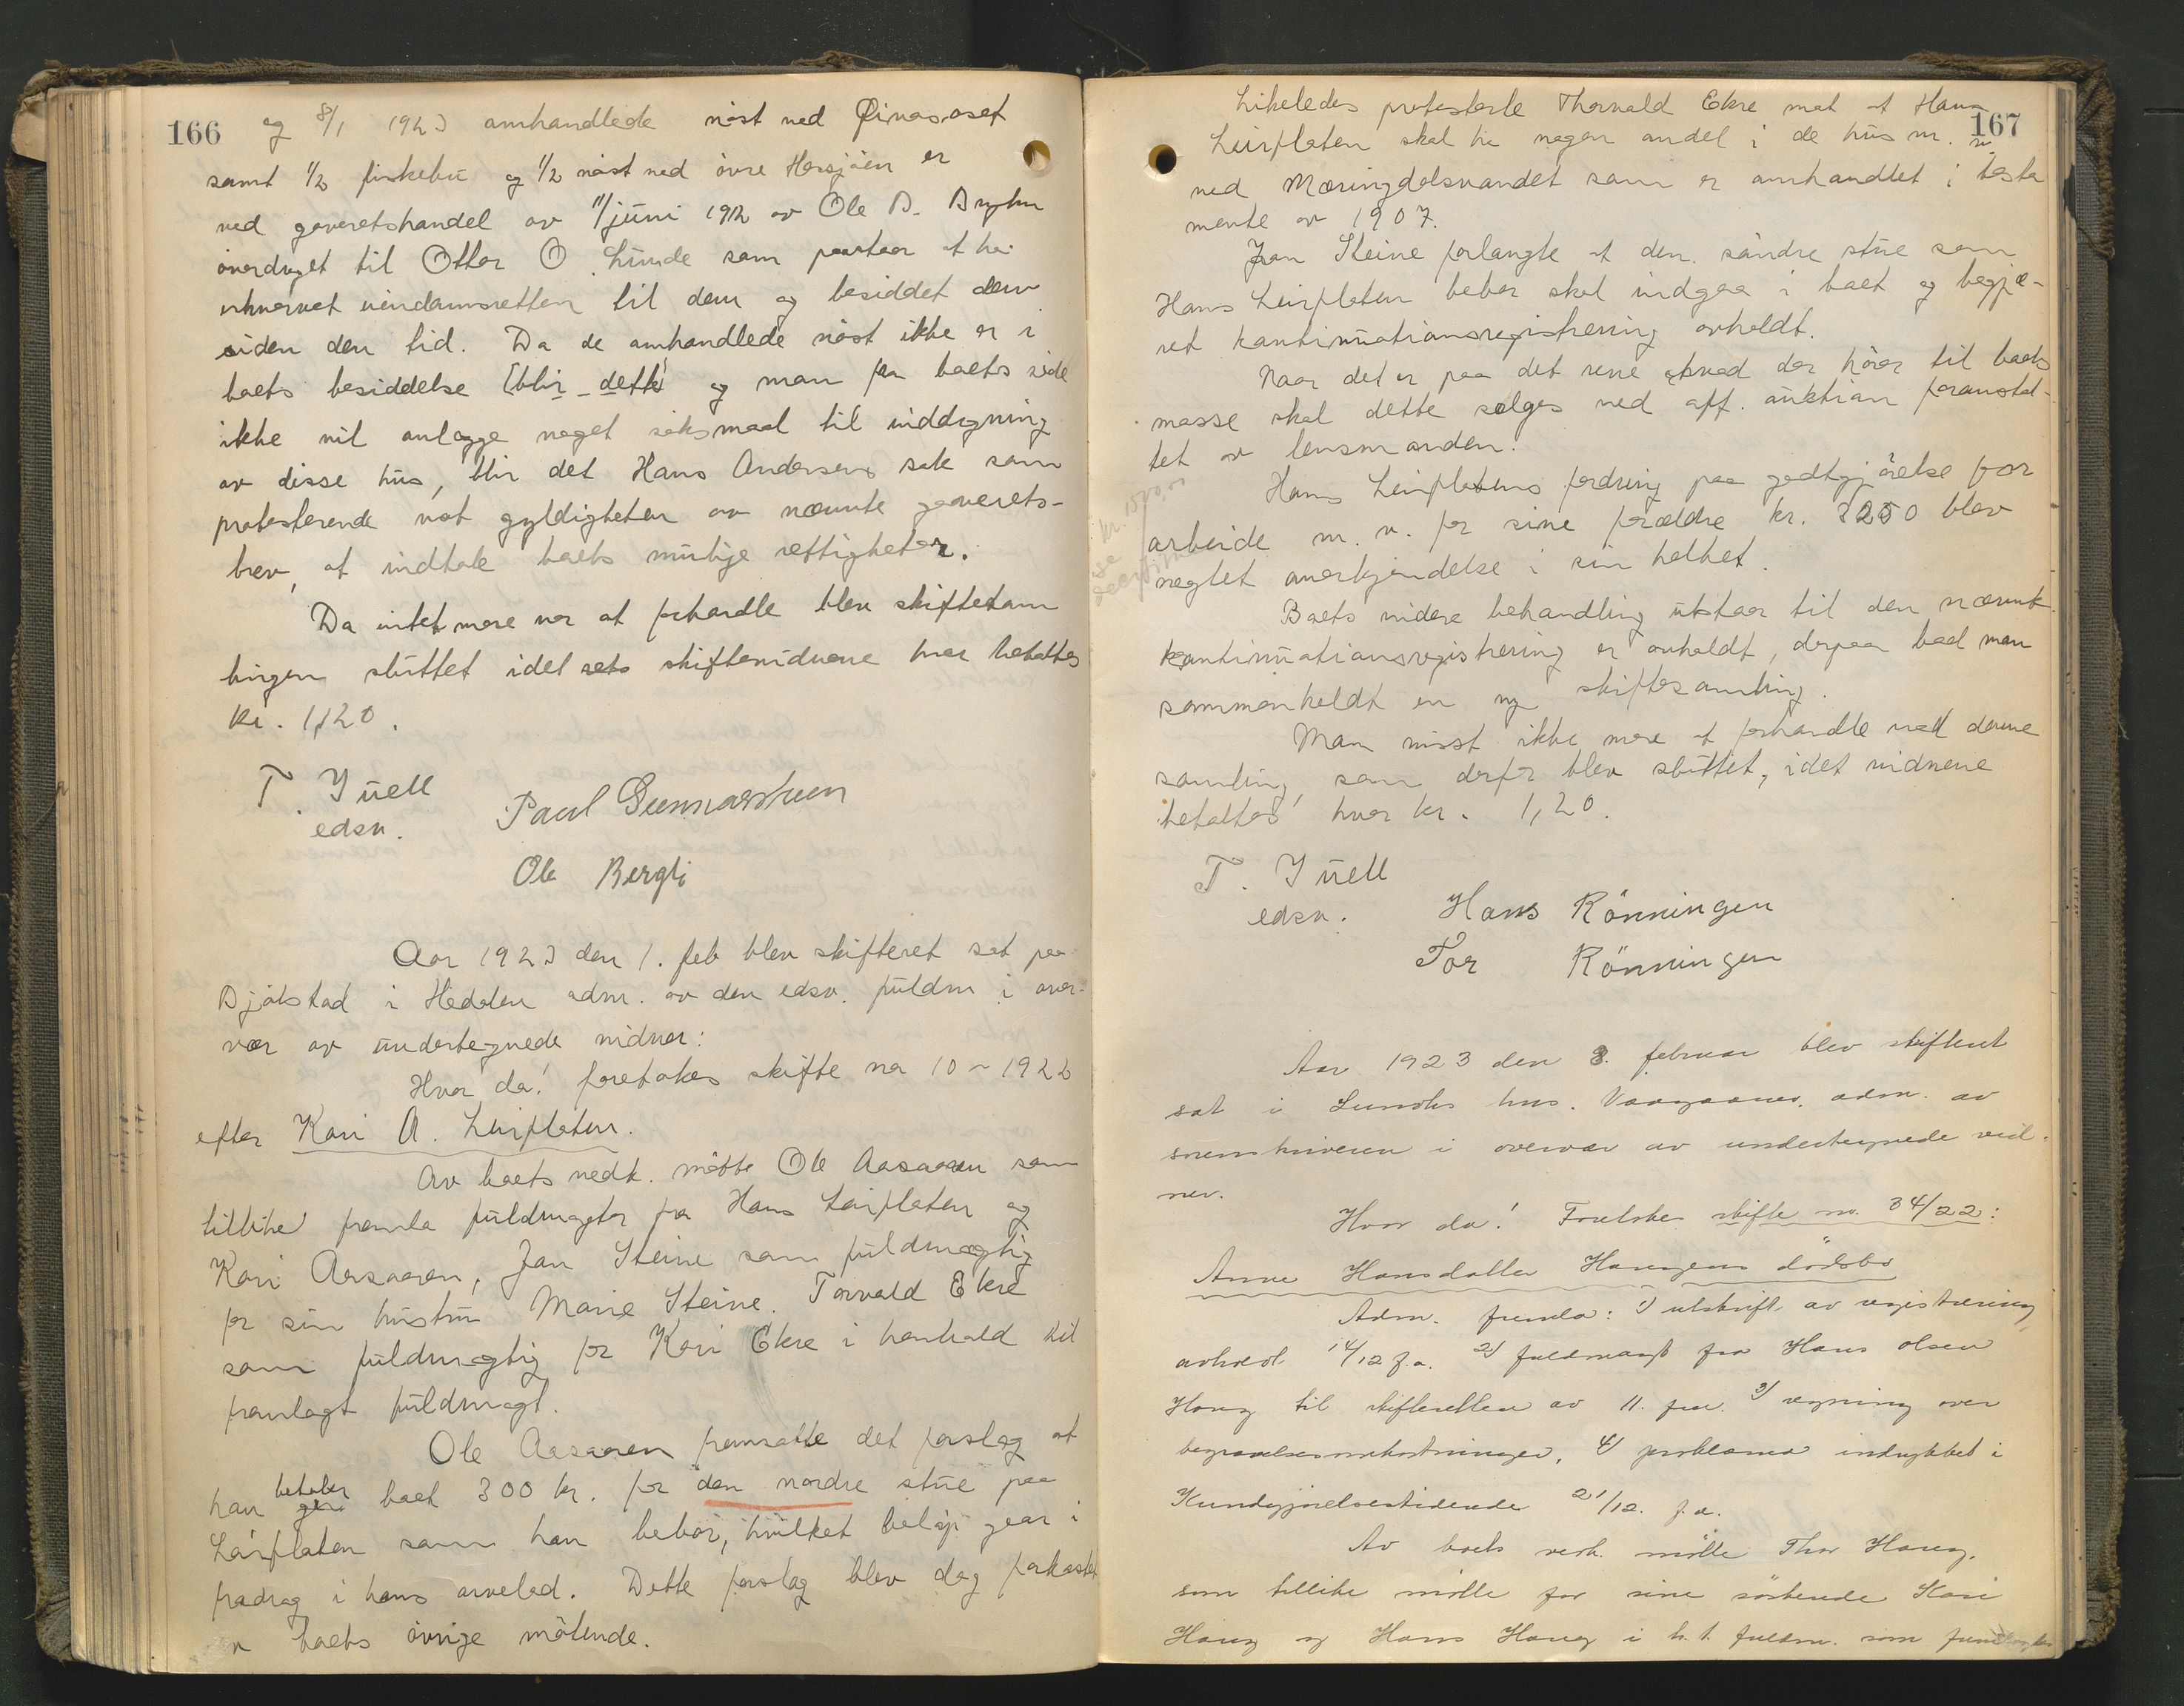 166
og 8/1 1923 omhandlede nöst ved
samt 1/2 fiskebu og 1/2 nöst ved övre Hersjöen er
ved gaveretshandel av 11/juni 1912 av Ole D.
overdraget til Ottar O. Lunde som paastaar at ha
erhvervet eiendomsretten til dem og besiddet dem
siden den tid. Da de omhandlede nöst ikke er i
boets besiddelse [blir dette] og man fra boets side
ikke vil anlægge noget söksmaal til inddragning
av disse hus, blir det Hans Andersens sak som
protesterende mot gyldigheten av nævnte gaverets-
brev, at indtale boets mulige rettigheter.
Da intet mere var at forhandle blev skiftesam
lingen sluttet idet rets skiftevidnene hver betaltes
kr. 1,20.
T. Juell
edsv.
Paul
Ole Bergli
Aar 1923 den 1. feb blev skifteret sat paa
Bjölstad i Hedalen adm. av den edsv. fuldm i over-
vær av undertegnede vidner:
Hvor da! foretokes skifte nr 10 - 1922
efter Kari A. Leirflaten.
Av boets vedk. mötte Ole Aasaaren som
tillike fremla fuldmagter fra Hans Leirflaten og
Kari Aasaaren, Jon Steine som fuldmægtig
for sin hustru Marie Steine. Torvald Ekre
som fuldmægtig for Kari Ekre i henhold til
fremlagt fuldmagt.
Ole Aasaaren fremsatte det forslag at
han betaler boet 300 kr. for den nordre stue paa
Leirflaten som han bebor, hvilket belöp gaar i
fradrag i hans arvelod. Dette forslag blev dog forkastet
av boets övrige mötende.
167
Likeledes protesterte Thorvald Ekre mot at Hans
Leirflaten skal ha nogen andel i de hus m. v
ved Mæringdalsvandet som er omhandlet i testa
mente av 1907.
Jon Steine forlangte at den söndre stue som
Hans Leirflaten bebor skal indgaa i boet og begjæ-
ret kontinuationsregistrering avholdt.
Naar det er paa det rene hvad der hörer til boets
masse skal dette selges ved off. auktion foranstal-
tet av lensmanden.
Hans Leirflatens fordring paa godtgjörelse for
arbeide m. v. for sine forældre kr. 3250 blev
negtet anerkjendelse i sin helhet.
Boets videre behandling utstaar til den nævnte
kontinuationsregistrering er avholdt, derpaa bad man
sammenholdt en ny skiftesamling.
Man visst ikke mere at forhandle ved denne
samling, som derfor blev sluttet, idet vidnene
betaltes hver kr. 1,20.
T. Juell
edsv.
Hans Rönningen
Tor Rönningen
Aar 1923 den 8. februar blev skifteret
sat i Lunchs hus. Vaagaaner. adm. av
sorenskriveren i overvær av undertegnede vid-
ner.
Hvor da! Foretokes skifte nr. 34/22:
Anne Hansdatter Haugens dödsbo
Adm. fremla: 1) utskrift av registrering
avholdt 14/12 f.a. 2) fuldmagt fra Hans Olsen
Haug til skifteretten av 11. jan. 3) regning over
begravelsesomkostninger, 4) proklama indrykket i
Kundgjörelsestidende 21/12. f.a.
Av boets vedk. mötte Thor Haug,
som tillike mötte for sine söskende Kari
Haug og Hans Haug i h. t. fuldm. som fremlagdes